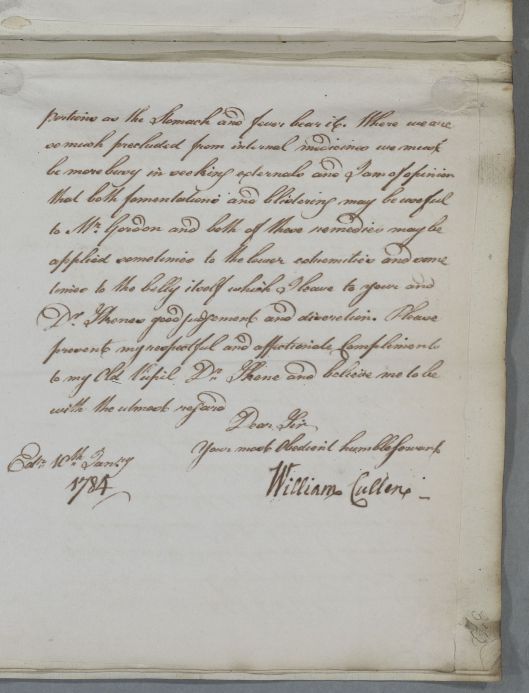 portions as the Stomach and fever bear it. Where we are
so much precluded from internal medicines we must
be more busy in seeking externals and I am of opinion
that both fomentations and blistering may be useful
to Mr. Gordon and both of these remedies may be
applied sometimes to the lower extremities and some
times to the belly itself which I leave to your and
Dr. good judgement and discretion. Please
present my respectful and affectionate Compliments
to my Old Pupil Dr. and believe me to be
with the utmost regard
Dear Sir
Your most Obedient humble Servant
Edr. 10th Jany
1784
William Cullen